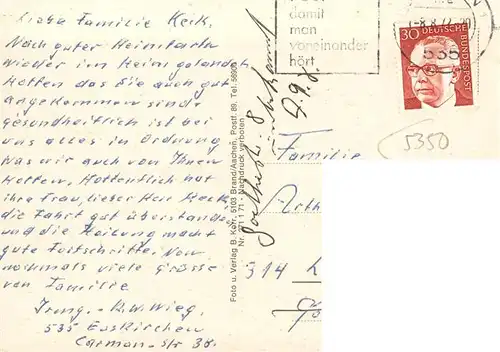 Liebe Familie Keck,
Nach guter Heimfahrt
wieder im Heim gelandet
Hoffen das Sie auch gut
angekommen sind.
gesundheitlich ist bei
uns alles in Ordnung
Was wir auch von Ihnen
Hoffen, Hoffentlich hat
ihre Frau, lieber Herr Keck
die Fahrt gut überstanden
und die Heilung macht
gute Fortschritte. Nun
nochmals viele Grüsse
von Familie
Irmg. - R.W. Wieg,
535 Euskirchen
Carman-Str 38.
Foto u. Verlag B. Kerr, 5103 Brand/Aachen, Postf. 89, Tel. 56003
Nr. 271 1 71 - Nachdruck verboten
Goethestr. 8
damit
man
voneinander
hört
-8.8.72-20
535
30 DEUTSCHE BUNDESPOST
5350
Familie
Arth
314